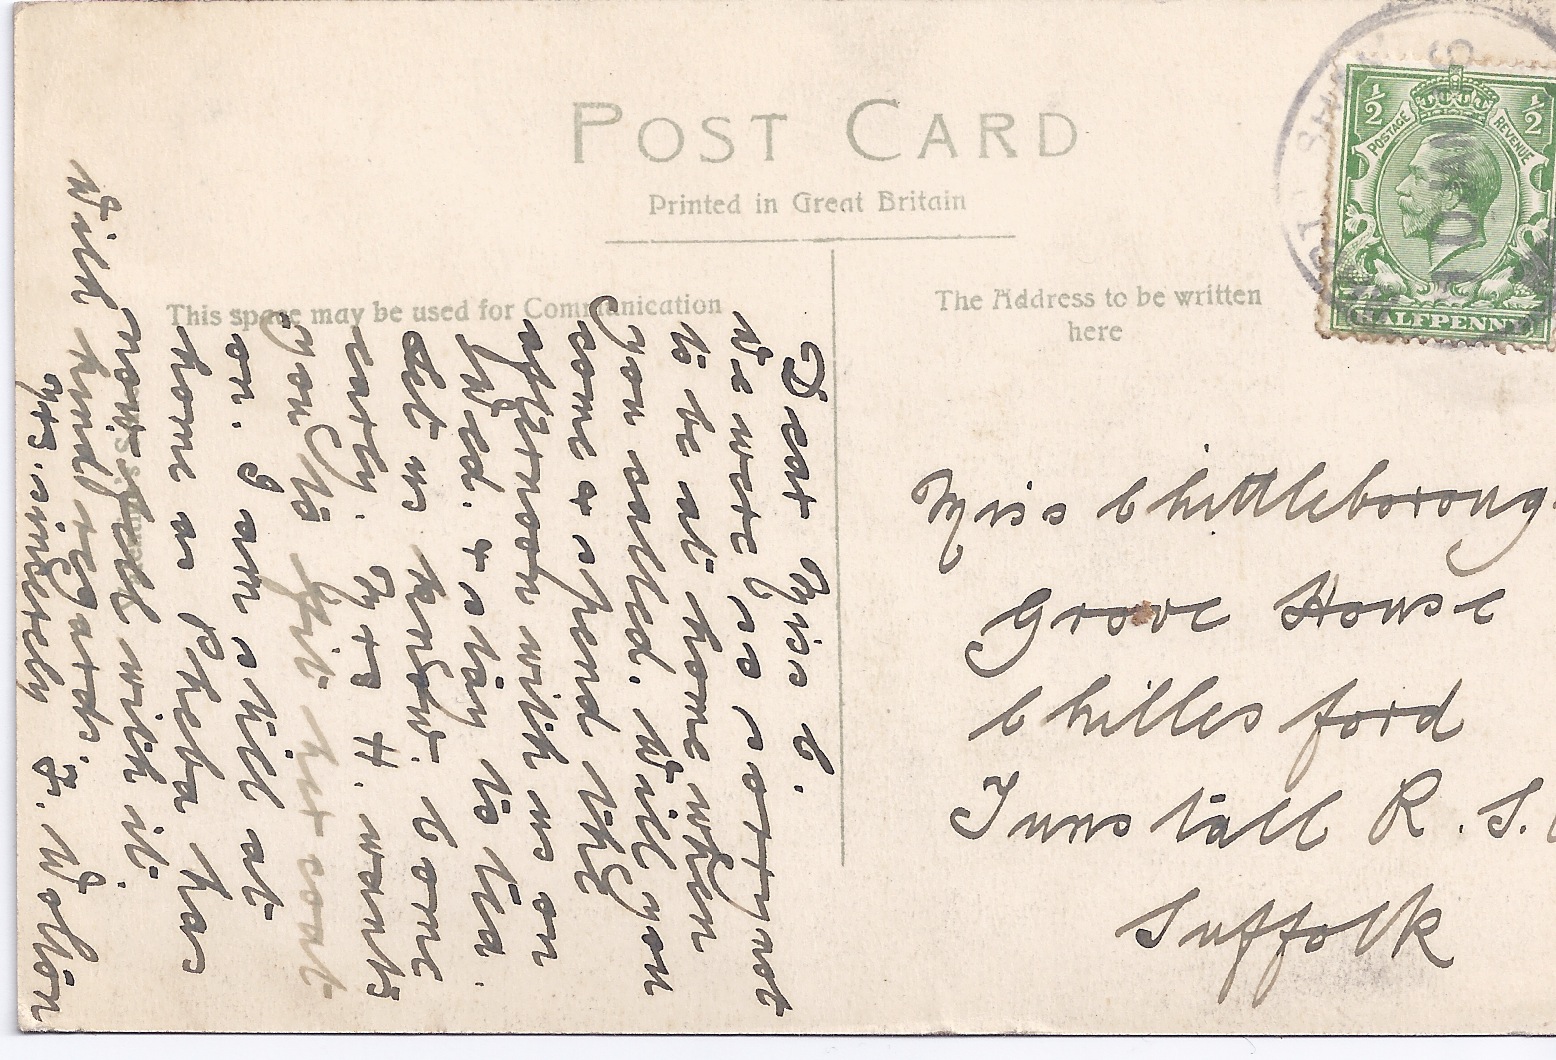 POST CARD
Printed in Great Britain
This space may be used for Communication
The Address to be written
here
½ ½
POSTAGE REVENUE
HALFPENNY
Dear Miss C.
We were so sorry not
to be at home when
you called. Will you
come & spend the
afternoon with us on
Wed. & stay to tea.
Let us know. Come
early. Mrs H. wants
you to fit her coat
on. I am still at
home as Pheba has
now fell with it.
With kind regards,
Yrs. sincerely F. Wolton
Miss Chittleboroug
Grove House
Chillesford
Tunstall R.S.
Suffolk